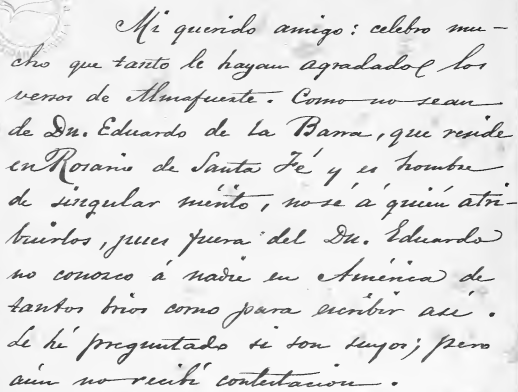 Mi querido amigo: celebro mu-
cho que tanto le hayan agradado los
versos de Almafuerte. Como no sean
de Dn. Eduardo de la Barra, que reside
en Rosario de Santa Fé y es hombre
de singular mérito, no sé á quién atri-
buirlos, pues fuera del Dn. Eduardo
no conozco á nadie en América de
tantos brios como para escribir asi.
Le hé preguntado si son suyos; pero
aún no recibí contestacion.